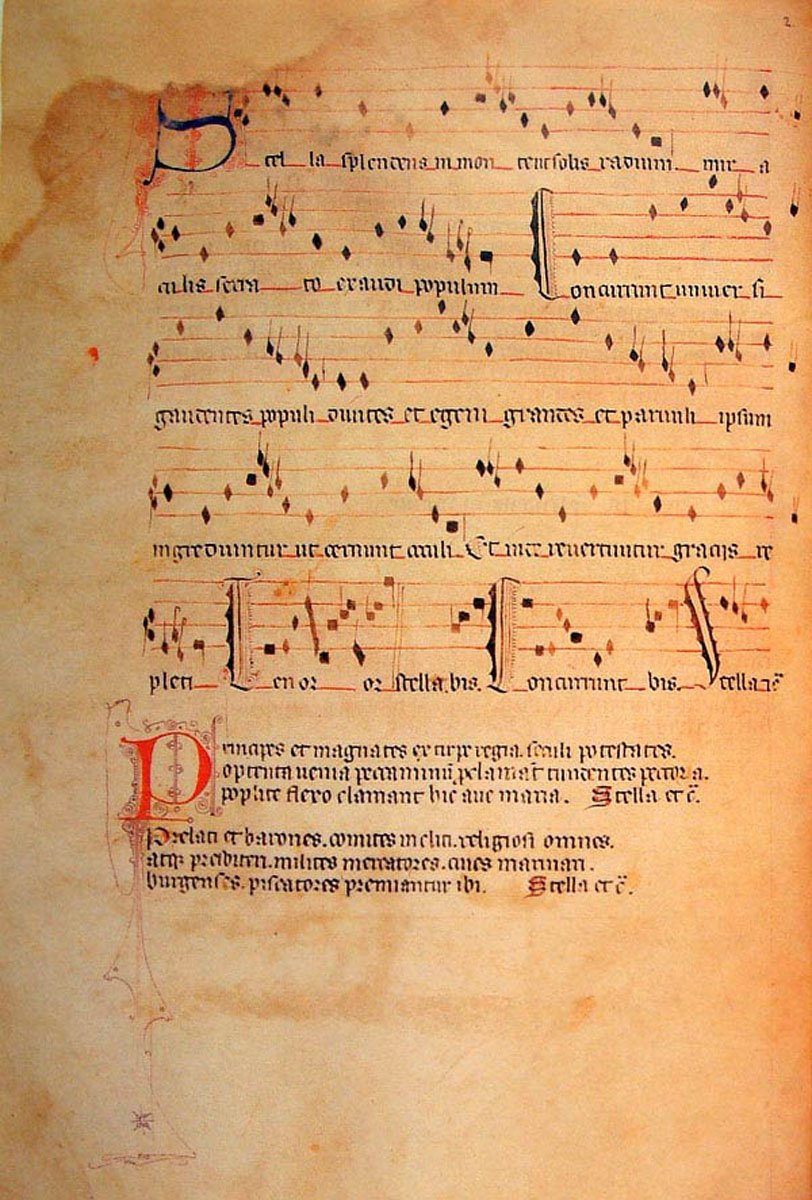 2
Stel la splendens in mon te ut solis radium mir a
culis serra to exaudi populum Concurrunt univer si
gaudentes populi divites et egeni grandes et parvuli ipsum
ingrediuntur ut cernunt oculi Et inde revertuntur gracijs re
pleti Tenor or stella. bis. Concurrunt bis. Stella
Principes et magnates ex tirpe regia. seculi potestates.
optenta venia tundentes pectora.
poplite flexo clamant hic ave maria. Stella et c̄.
Prelati et barones. comites incliti. religiosi omnes.
atq; presbiteri. milites mercatores. cives marinari.
burgenses. piscatores premiantur ibi. Stella et c̄.